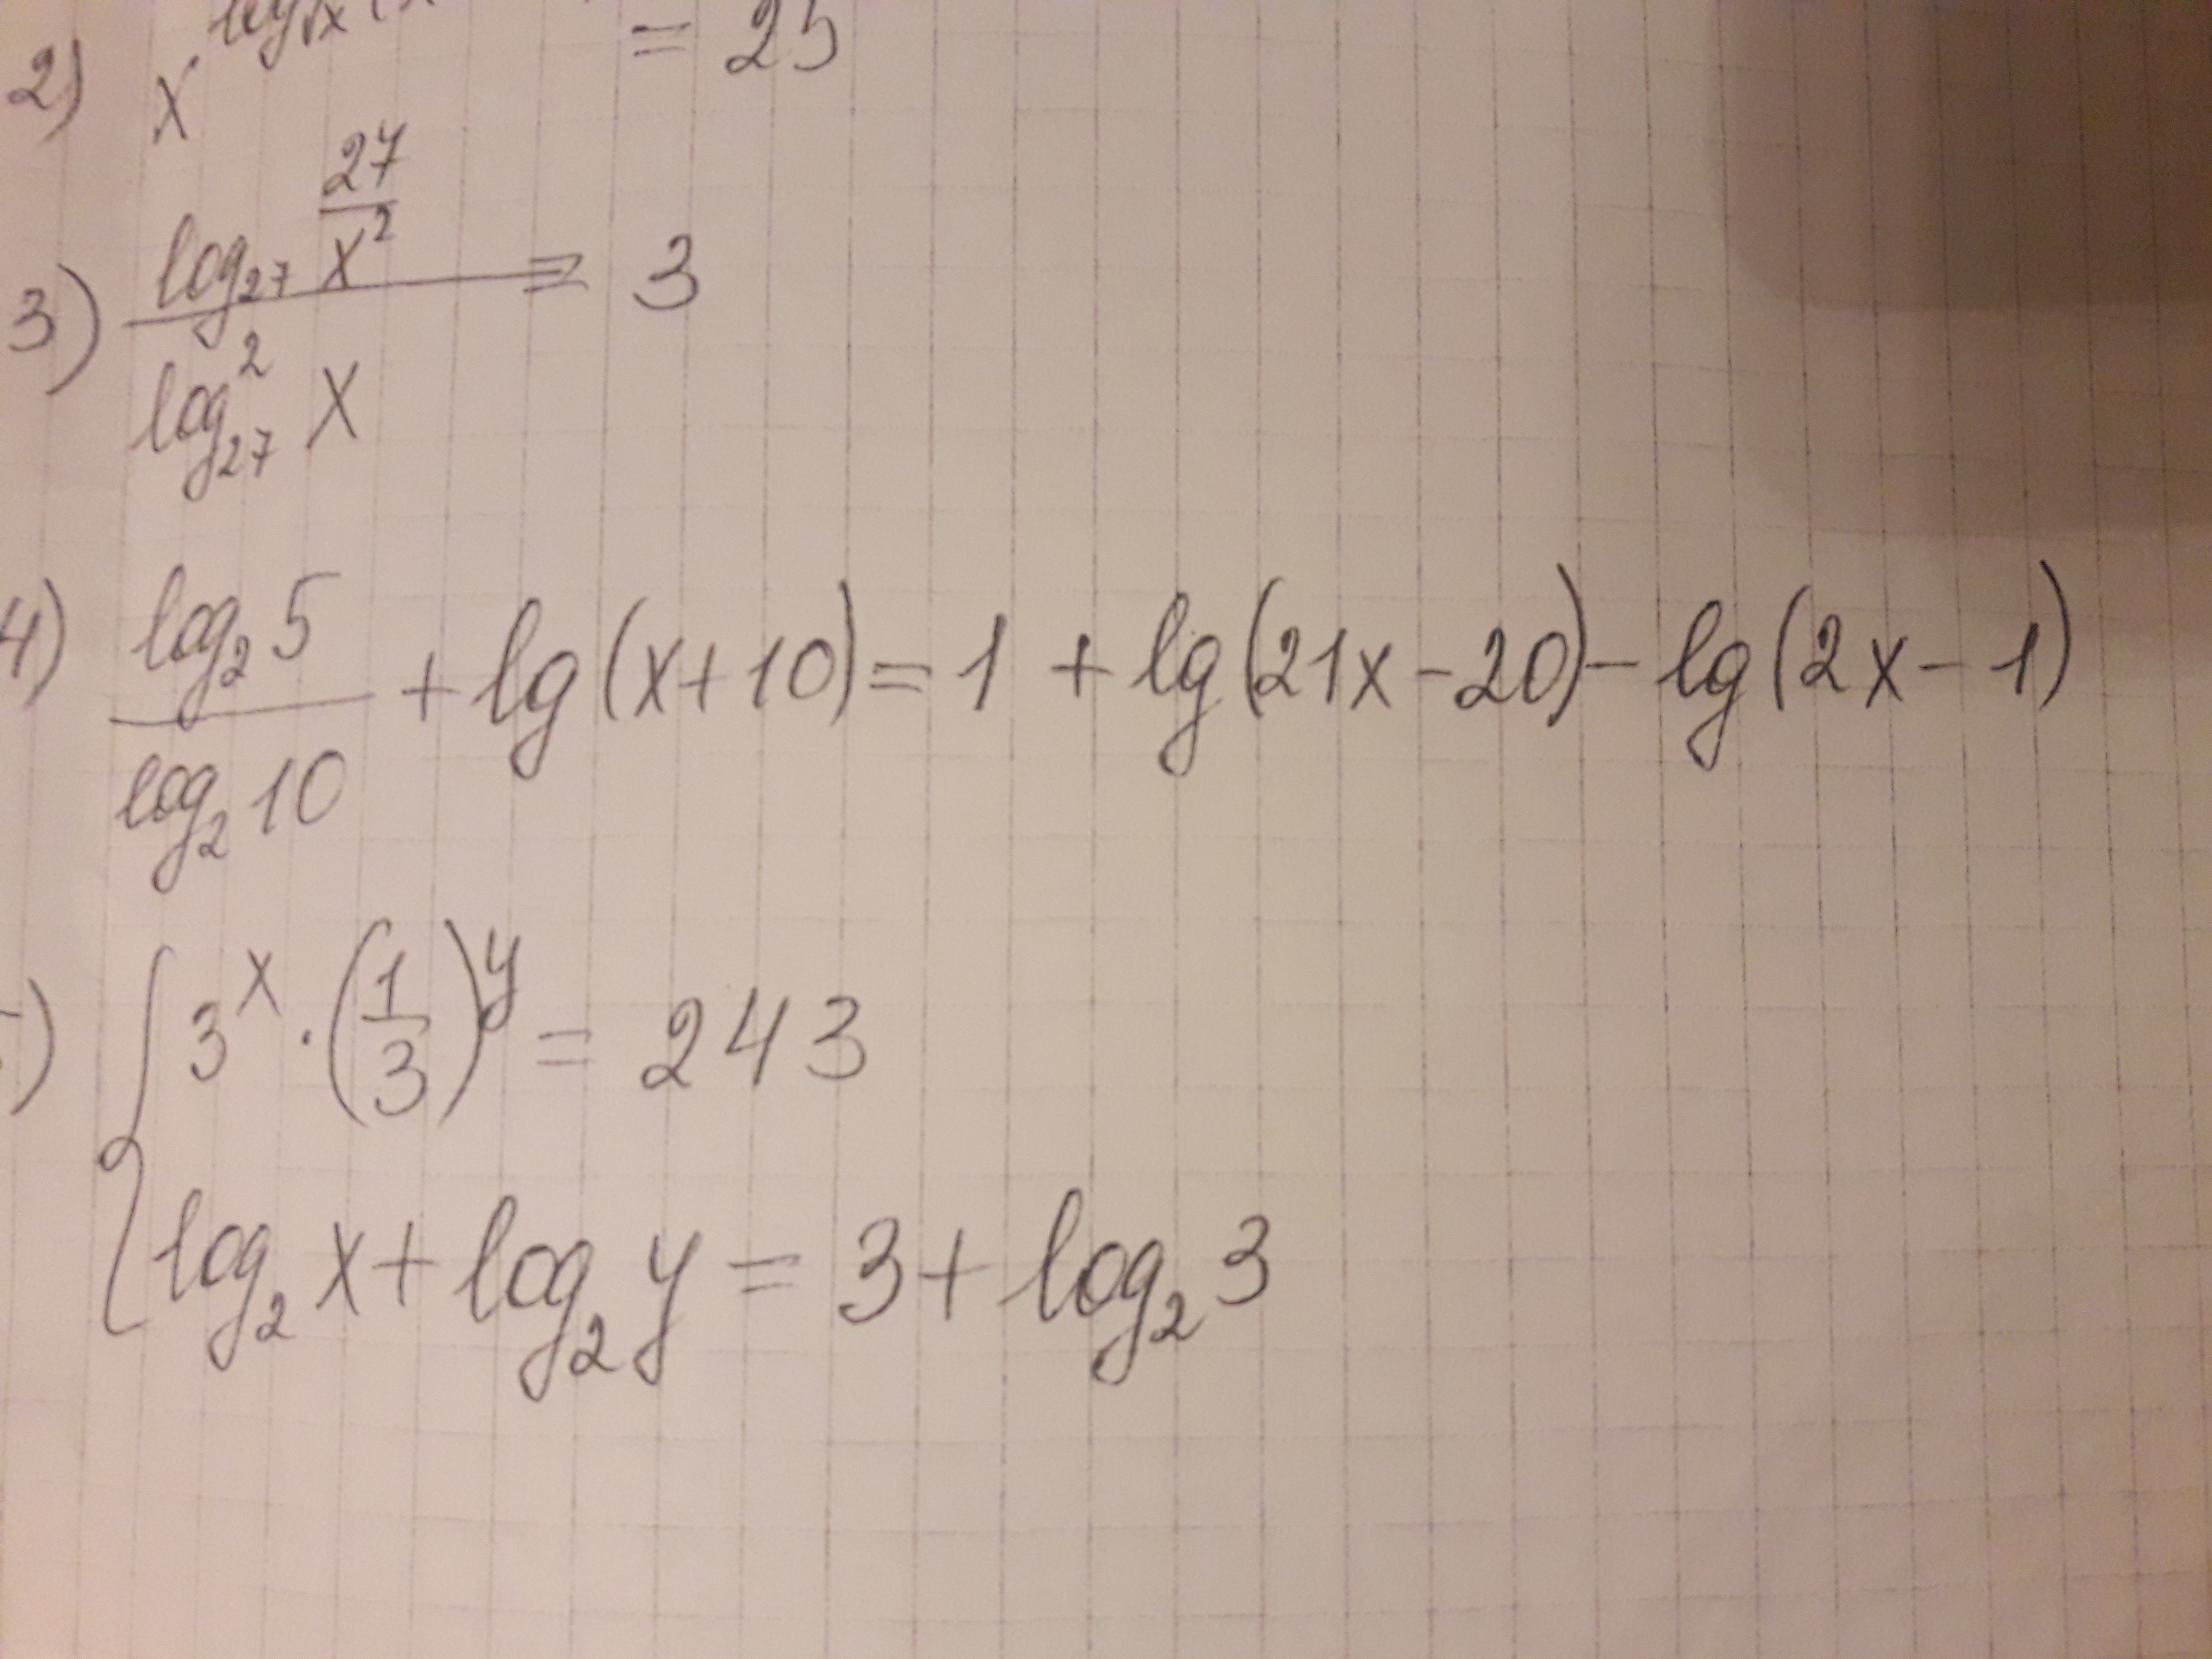 2) x^log_√x = 25
3) (log_27 27/x^2) / (log^2_27 x) = 3
4) (log_2 5) / (log_2 10) + lg(x+10) = 1 + lg(21x-20) - lg(2x-1)
) { 3^x · (1/3)^y = 243
log_2 x + log_2 y = 3 + log_2 3